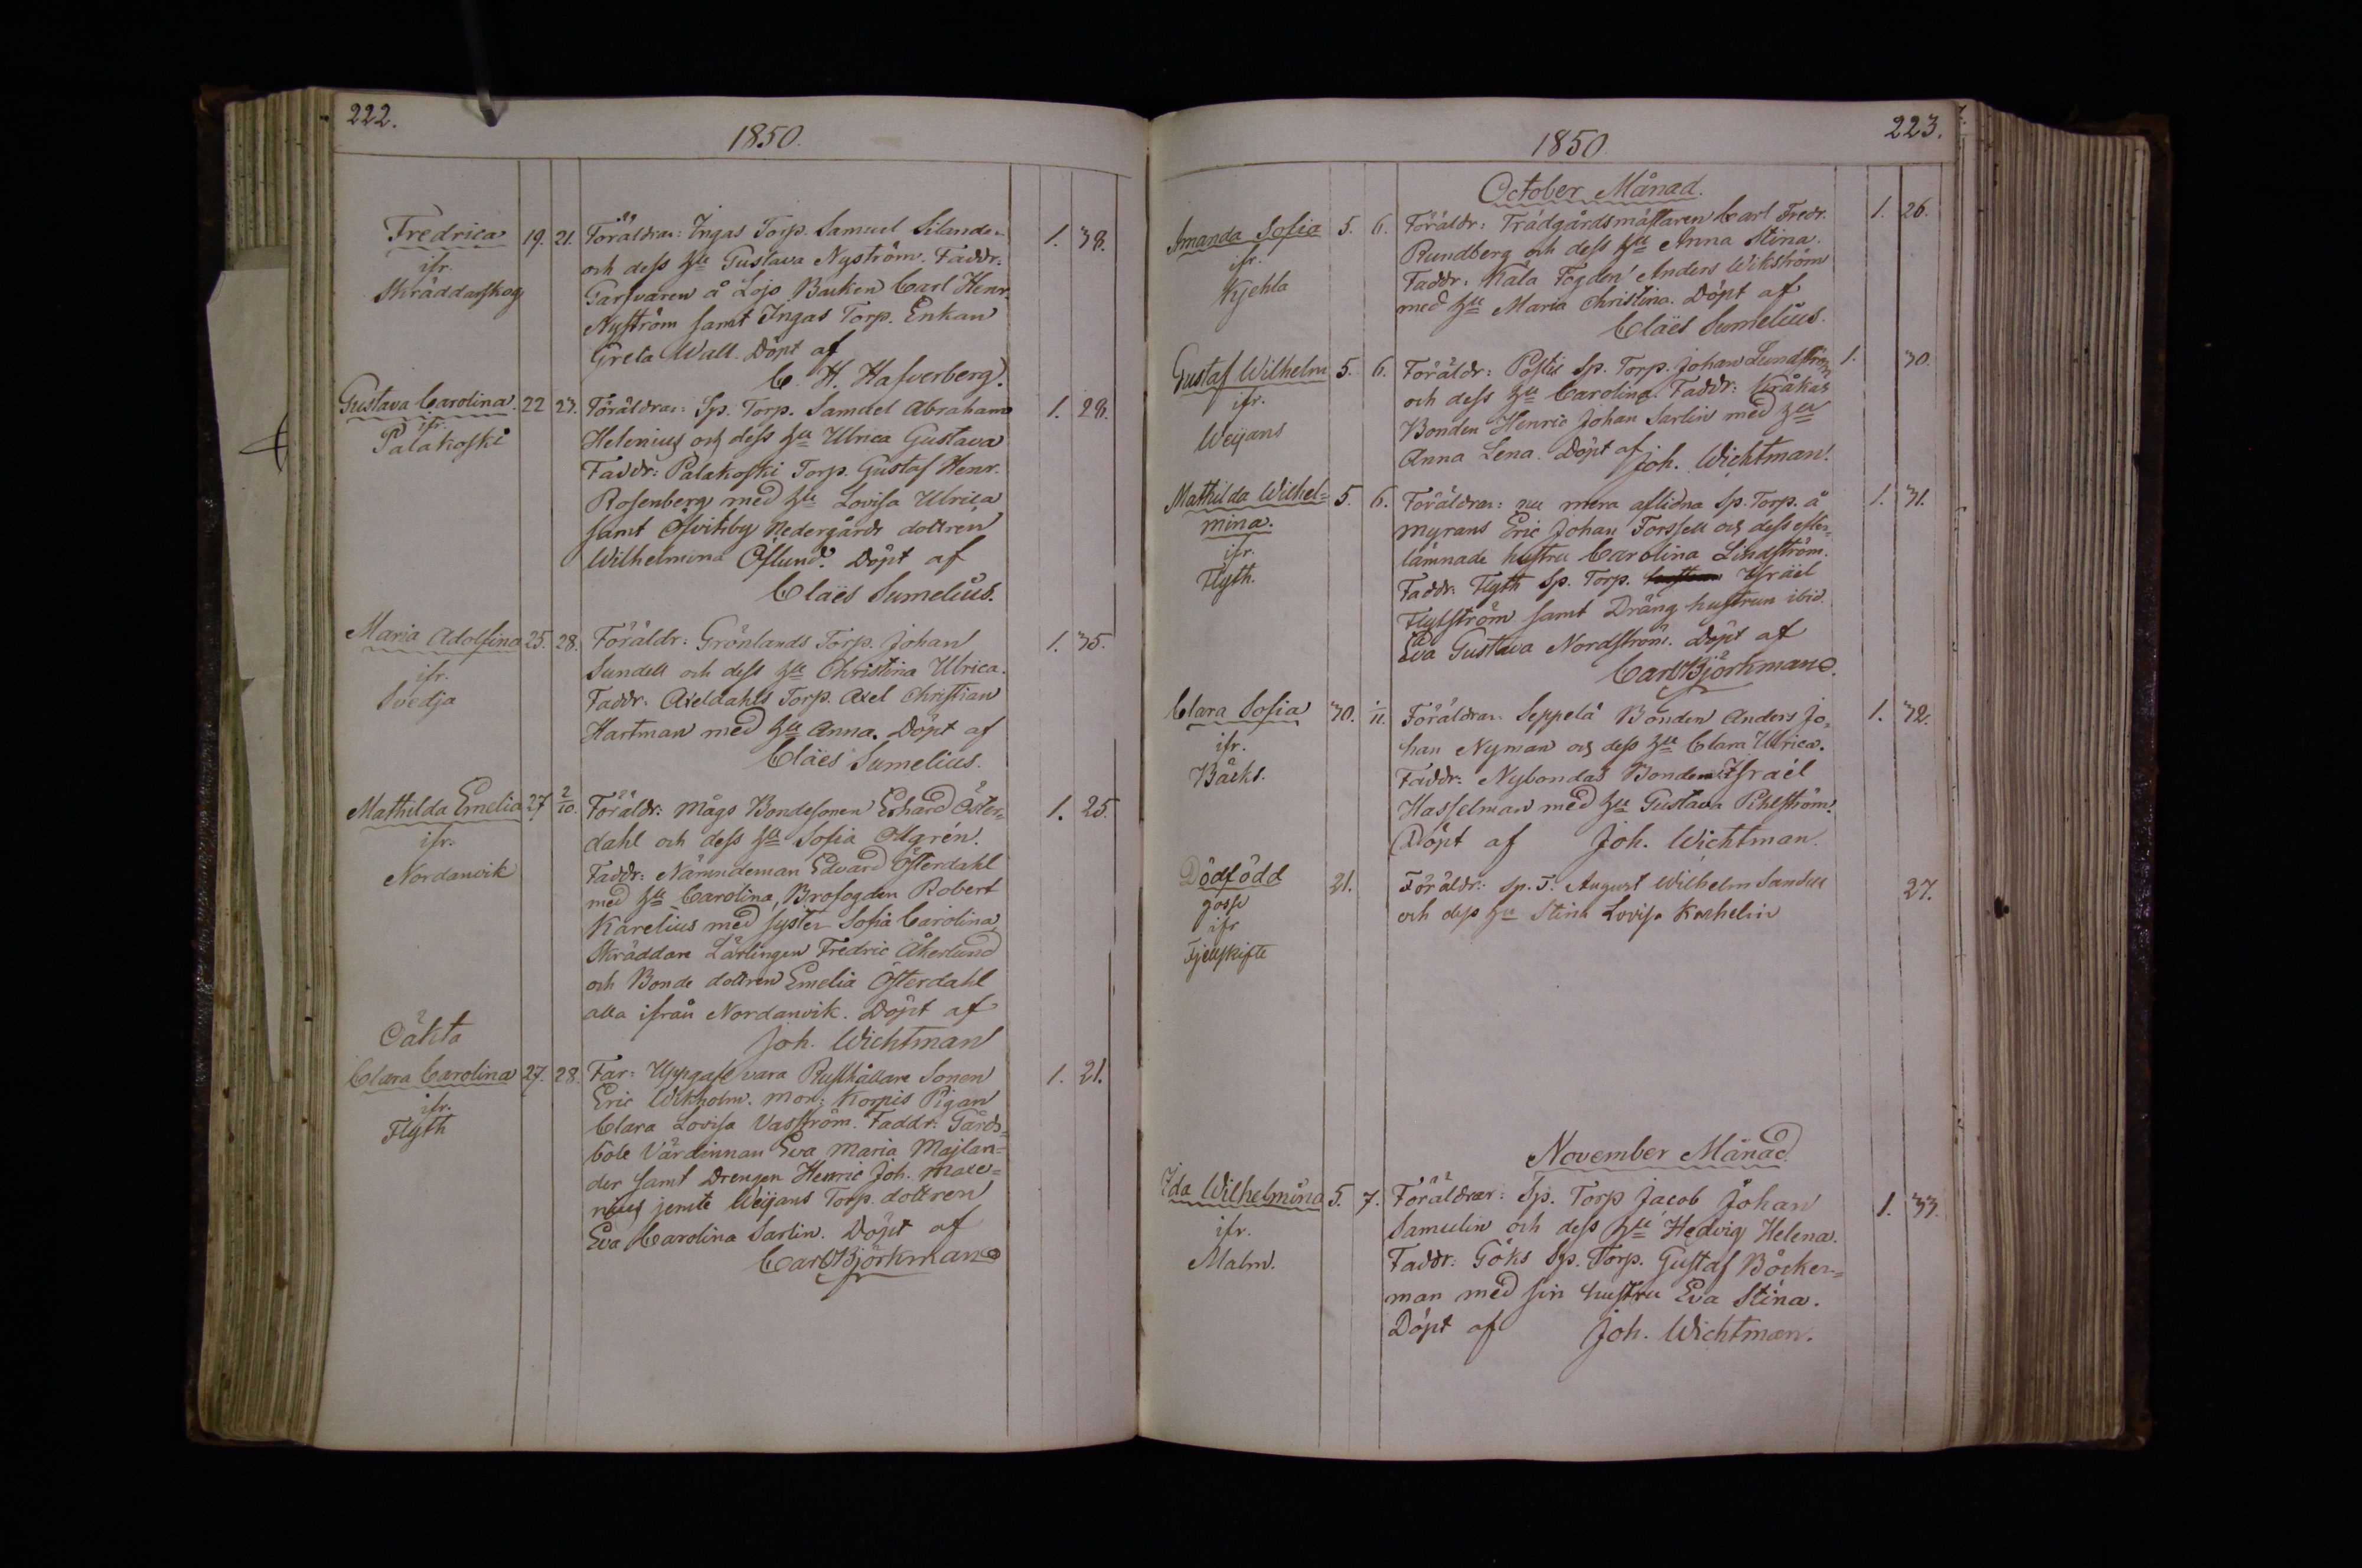 222.
1850.
Fredrica 19. 21. Föräldrar: Ingas Torp. Samuel Silander 1. 38.
ifr. och dess hu Gustava Nyström. Faddr:
Skräddarskog Garfvaren å Lojo Backen Carl Henr.
Nyström samt Ingas Torp. Enkan
Greta Wall. Döpt af
C. H. Hafverberg.
Gustava Carolina. 22 23. Föräldrar: Sp. Torp. Samuel Abraham 1. 28.
ifr. Helenius och dess hu Ulrica Gustava
Palakoski Faddr: Palakoski Torp. Gustaf Henr.
Rosenberg med hu Lovisa Ulrica
samt Ösvitsby Nedergårds dottren
Wilhelmina Öslund. Döpt af
Claës Sumelius.
Maria Adolfina 25. 28. Föräldr: Grönlands Torp. Johan 1. 35.
ifr. Sundell och dess hu Christina Ulrica.
Svedja Faddr: Axeldahls Torp. Axel Christian
Hartman med hu Anna. Döpt af
Claës Sumelius.
Mathilda Emelia 27 2/10. Föräldr: Mågs Bondesonen Erhard Öster= 1. 25.
ifr. dahl och dess hu Sofia Ölgrén.
Nordanvik Faddr: Nämndeman Edvard Österdahl
med hu Carolina, Brofogden Robert
Karelius med syster Sofia Carolina,
Skräddare Lärlingen Fredric Åkerlund
och Bonde dottren Emelia Österdahl
alla ifrån Nordanvik. Döpt af
Joh. Wichtman
Oäkta
Clara Carolina 27. 28. Far: Uppgafs vara Rusthållare Sonen 1. 21.
ifr. Eric Wikholm. Mor: Korpis Pigan
Flyth Clara Lovisa Vasström. Faddr: Gårds=
böle Värdinnan Eva Maria Majlan=
der samt Drengen Henric Joh. Maxe=
nius jemte Weijans Torp. dottren
Eva Carolina Sarlin. Döpt af
Carl Björkman
223.
1850.
October Månad.
Amanda Sofia 5. 6. Föräldr: Trädgårdsmästaren Carl Fredr. 1. 26.
ifr. Rundberg och dess hu Anna Stina.
Kjehla Faddr. Kala Fogden Anders Wikström
med hu Maria Christina. Döpt af
Claës Sumelius.
Gustaf Wilhelm 5. 6. Föräldr: Postis Sp. Torp. Johan Lundström 1. 30.
ifr. och dess hu Carolina. Faddr: Kråkas
Weijans Bonden Henric Johan Sarlin med hu
Anna Lena. Döpt af
Joh. Wichtman.
Mathilda Wilhel= 5. 6. Föräldrar: nu mera aflidna Sp. Torp. å 1. 31.
mina. Myrans Eric Johan Forssell och dess efter=
ifr. lämnade hustru Carolina Lindström.
Flyth. Faddr: Flyth Sp. Torp. Israël
Flytström samt Dräng hustrun ibid.
Eva Gustava Nordström. Döpt af
Carl Björkman.
Clara Sofia 30. 1/11. Föräldrar: Seppelä Bonden Anders Jo= 1. 32.
ifr. han Nyman och dess hu Clara Ulrica.
Bäcks. Faddr: Nybondas Bonden Israël
Hasselman med hu Gustava Pihlström.
Döpt af Joh. Wichtman.
Dödfödd 21. Föräldr: Sp. T. August Wilhelm Sandell 27.
gosse och dess hu Stina Lovisa Kashelin
ifr
Fjellskifte
November Månad
Ida Wilhelmina 5. 7. Föräldrar: Sp. Torp Jacob Johan 1. 33.
ifr. Samulin och dess hu Hedvig Helena.
Malm. Faddr: Göks Sp. Torp. Gustaf Böcker=
man med sin hustru Eva Stina.
Döpt af Joh. Wichtman.